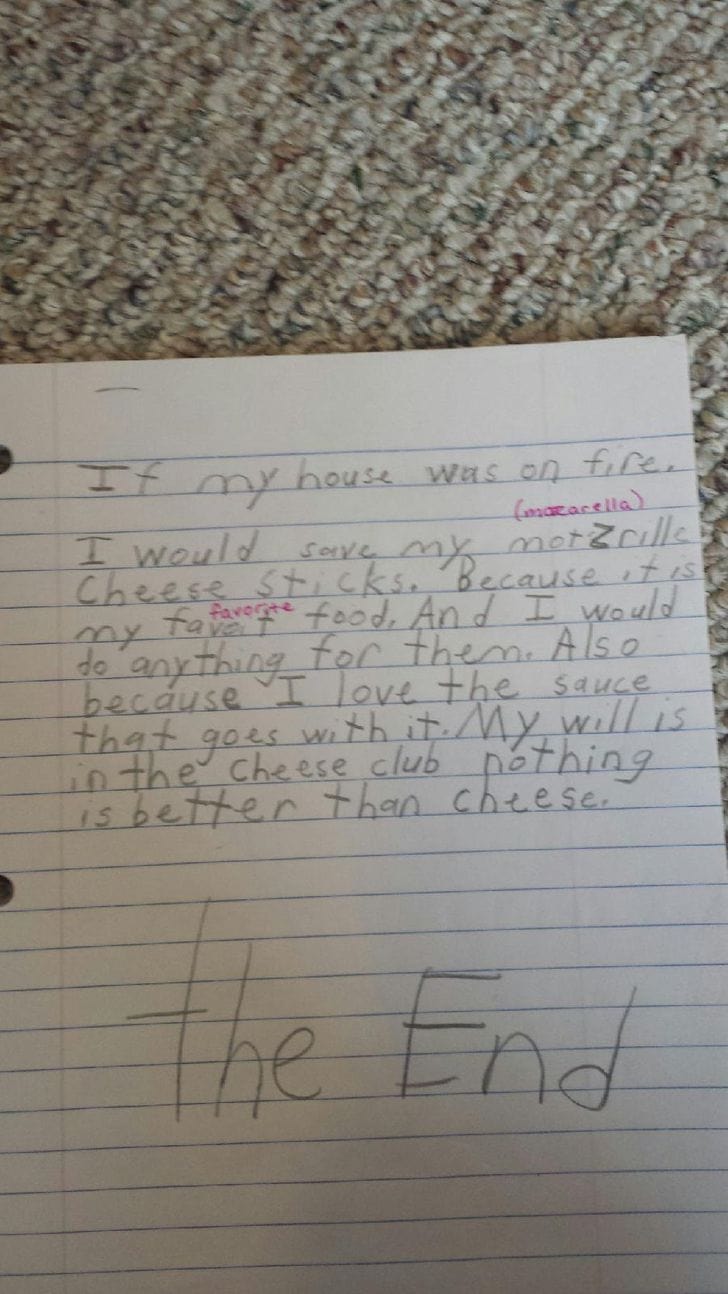 If my house was on fire.
(mozarella)
I would save my motzrille
Cheese sticks. Because it is
favorite
my favort food. And I would
do anything for them. Also
because I love the sauce
that goes with it. My will is
in the cheese club nothing
is better than cheese.
the End